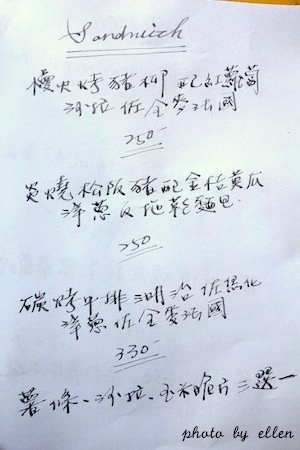 Sandwich
慢火烤豬柳 配紅蘿蔔
沙拉 佐全麥法國
250-
炎燒松阪豬配金桔黃瓜
洋蔥 皮地乾麵包
250
碳烤牛排三明治 佐焦化
洋蔥 佐全麥法國
330-
薯條、沙拉、玉米脆片三選一
photo by ellen